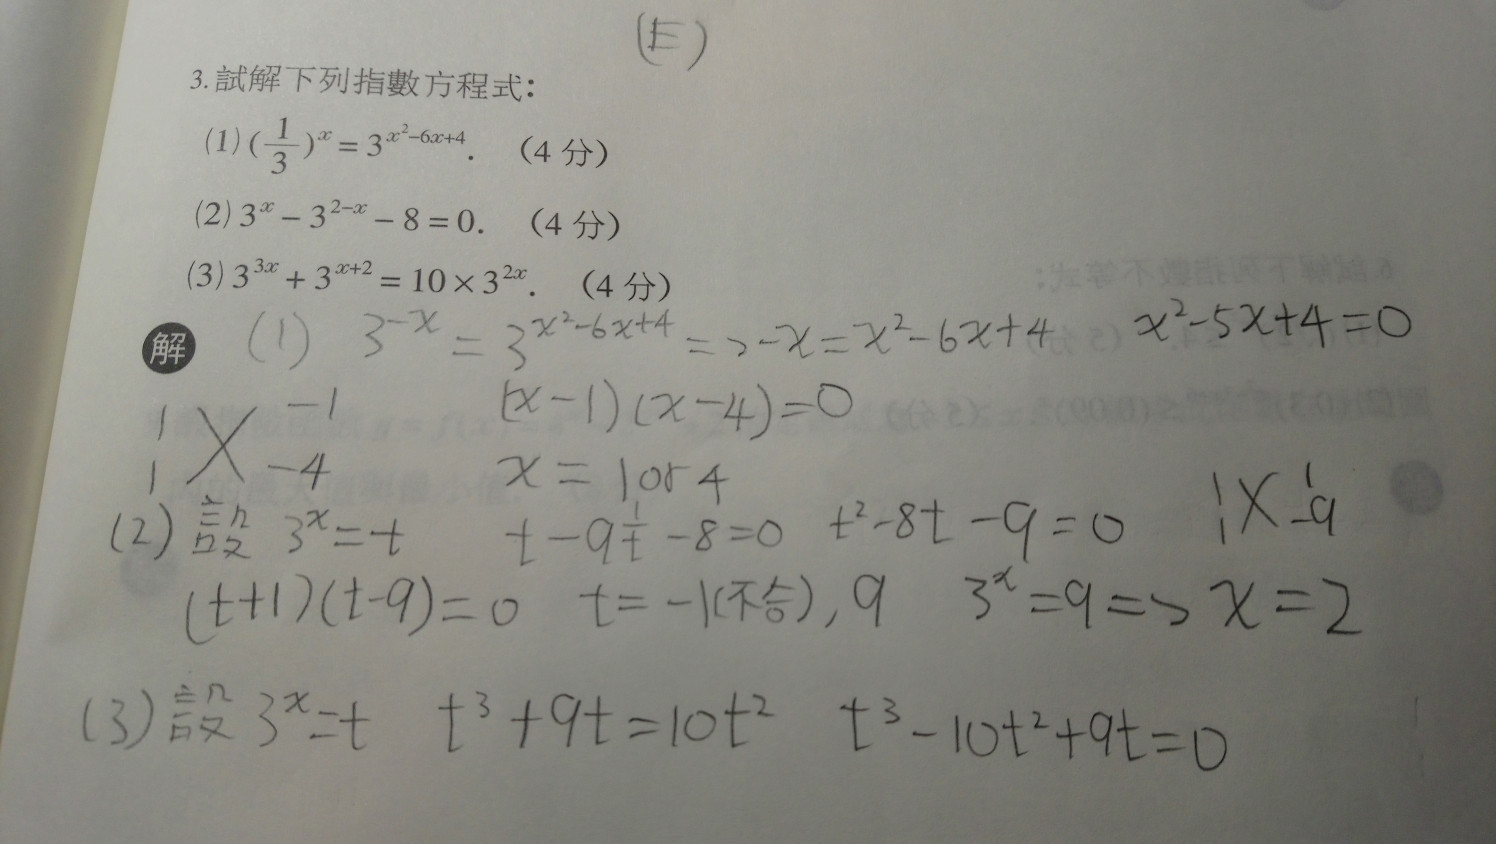 (E)
3.試解下列指數方程式：
(1) (1/3)^x = 3^(x²−6x+4). （4 分）
(2) 3^x − 3^(2−x) − 8 = 0. （4 分）
(3) 3^(3x) + 3^(x+2) = 10 × 3^(2x). （4 分）
解 (1) 3^(-x) = 3^(x²-6x+4) => -x = x²-6x+4 x²-5x+4=0
1 -1 (x-1)(x-4)=0
1 -4 x = 1 or 4
(2) 設 3^x = t t-9 1/t -8=0 t²-8t-9=0 1 1
1 -9
(t+1)(t-9)=0 t=-1(不合), 9 3^x=9 => x=2
(3) 設 3^x=t t³+9t=10t² t³-10t²+9t=0